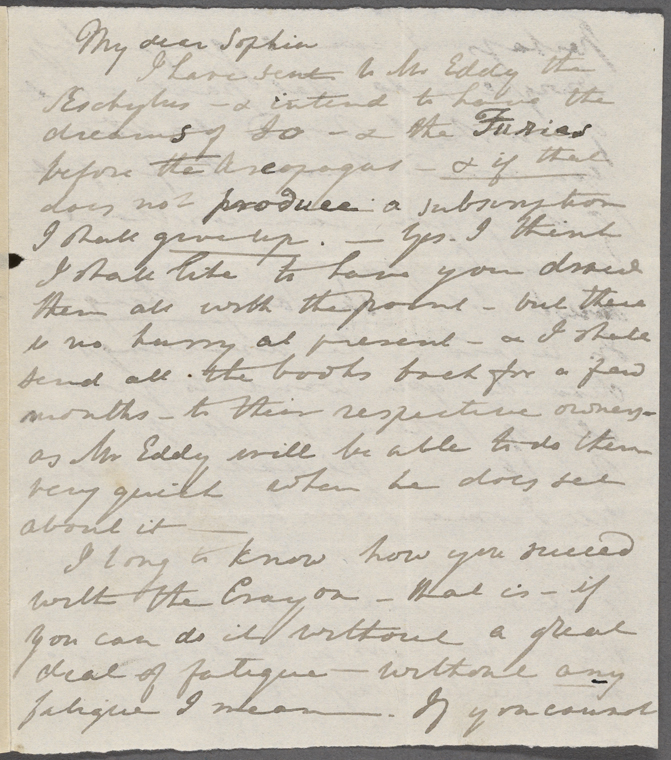 My dear Sophia
I have sent to Mr Eddy the
Æschylus - & intend to have the
dreams of Io - & the Furies
before the Areopagus - & if that
does not produce a subscription
I shall give up. - Yes. I think
I shall like to have you draw
them all with the point - but there
is no hurry at present - as I shall
send all the books back for a few
months - to their respective owners -
as Mr Eddy will be able to do them
very quick when he does set
about it -
I long to know how you succeed
with the Crayon - that is - if
you can do it without a great
deal of fatigue - without any
fatigue I mean -. If you cannot